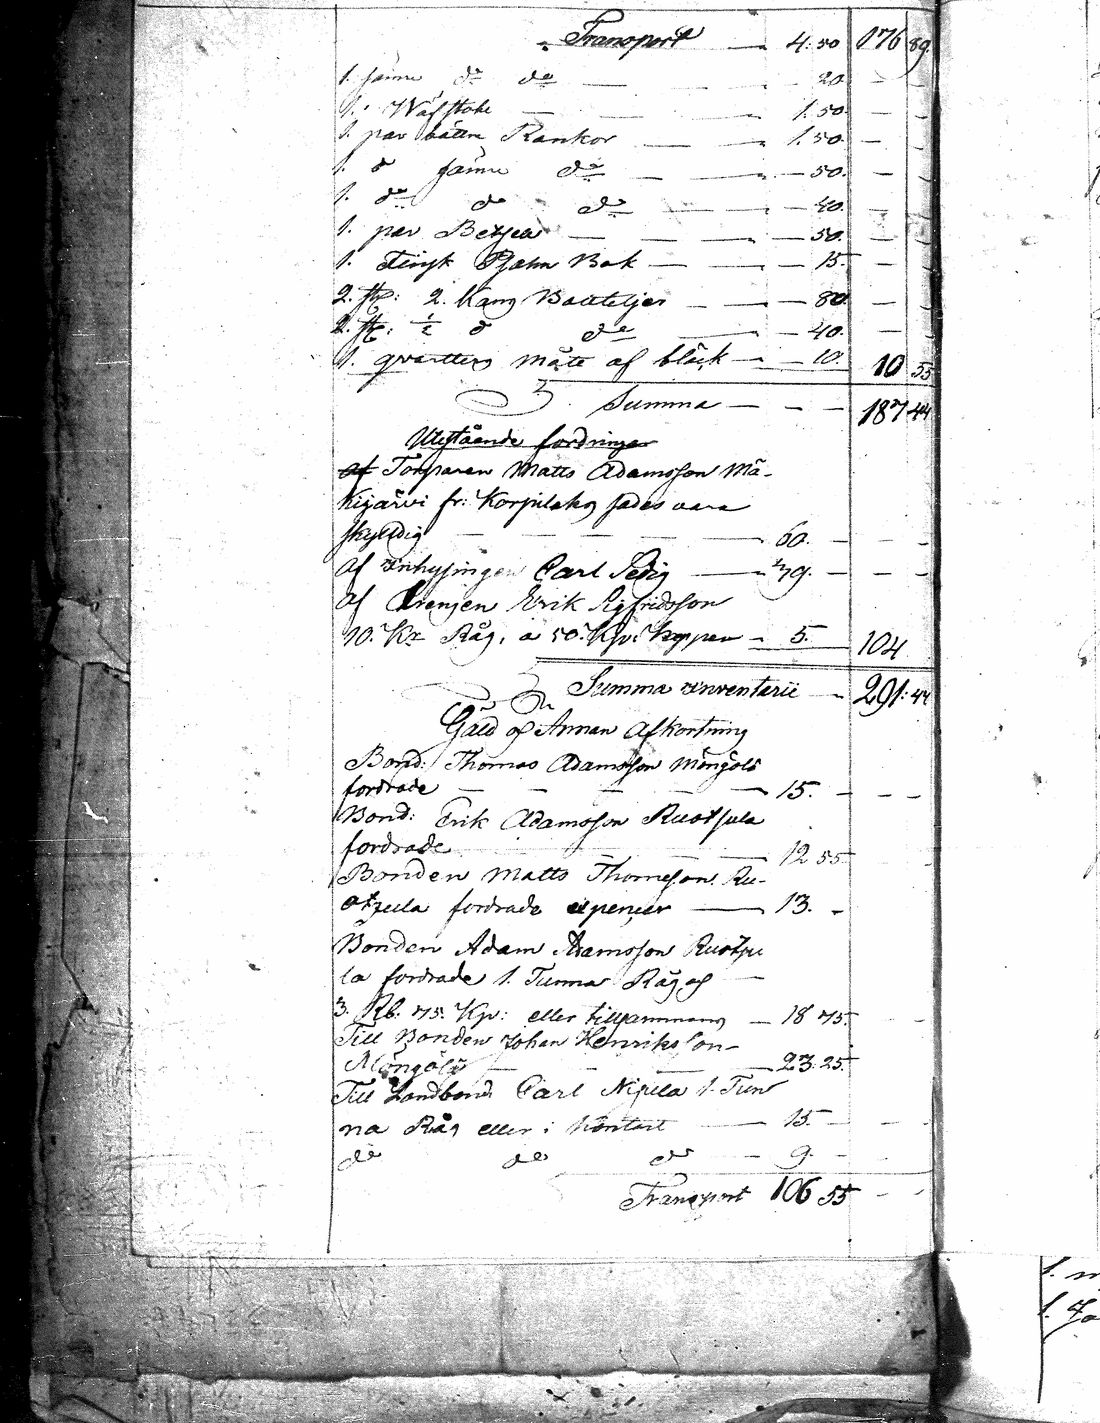 Transport — 4. 50 176 89.
1. sämre do do — 20. — —
1. Wäfstohl — 1. 50. — —
1. par bättre Rankor — 1. 50. — —
1. d sämre do — 50. — —
1. do do do — 40. — —
1. par Betsca — 50. — —
1. Finsk Psalm Bok — 15. — —
2. st: 2. Kans Boutteljer — 80. — —
2. st: ½ d do — 40. — —
1. qvarters måte af bläck — 10. 10 55
Summa — — — 187 44
Utestående fordringar
af Torparen Matts Adamsson Mä-
kijärvi fr: Korpilaks sades vara
skyldig — 60. — —
af Inhysingen Carl Sedig — 39. — —
af Drengen Erik Sigfridsson
10. Kr Råg, a 50. Kp: Kappen — 5. 104
Summa Inventarii — 291. 44
Gäld och Annan Afkortning
Bond: Thomas Adamsson Möngölä
fordrade — 15. — —
Bond: Erik Adamsson Ruotsula
fordrade — 12 55 —
Bonden Matts Thomesson Ru-
otsula fordrade — 13. —
Bonden Adam Adamsson Ruotsu
la fordrade 1. Tunna Råg och —
3. Rb. 75. Kp: eller tillsammans — 18 75.
Till Bonden Johan Henriksson
Möngölä — 23. 25.
Till Landbond Carl Nipula 1. Tun
na Råg eller i Kontant — 15 — —
do do do — 9. —
Transport 106 55 — —
1.
1.